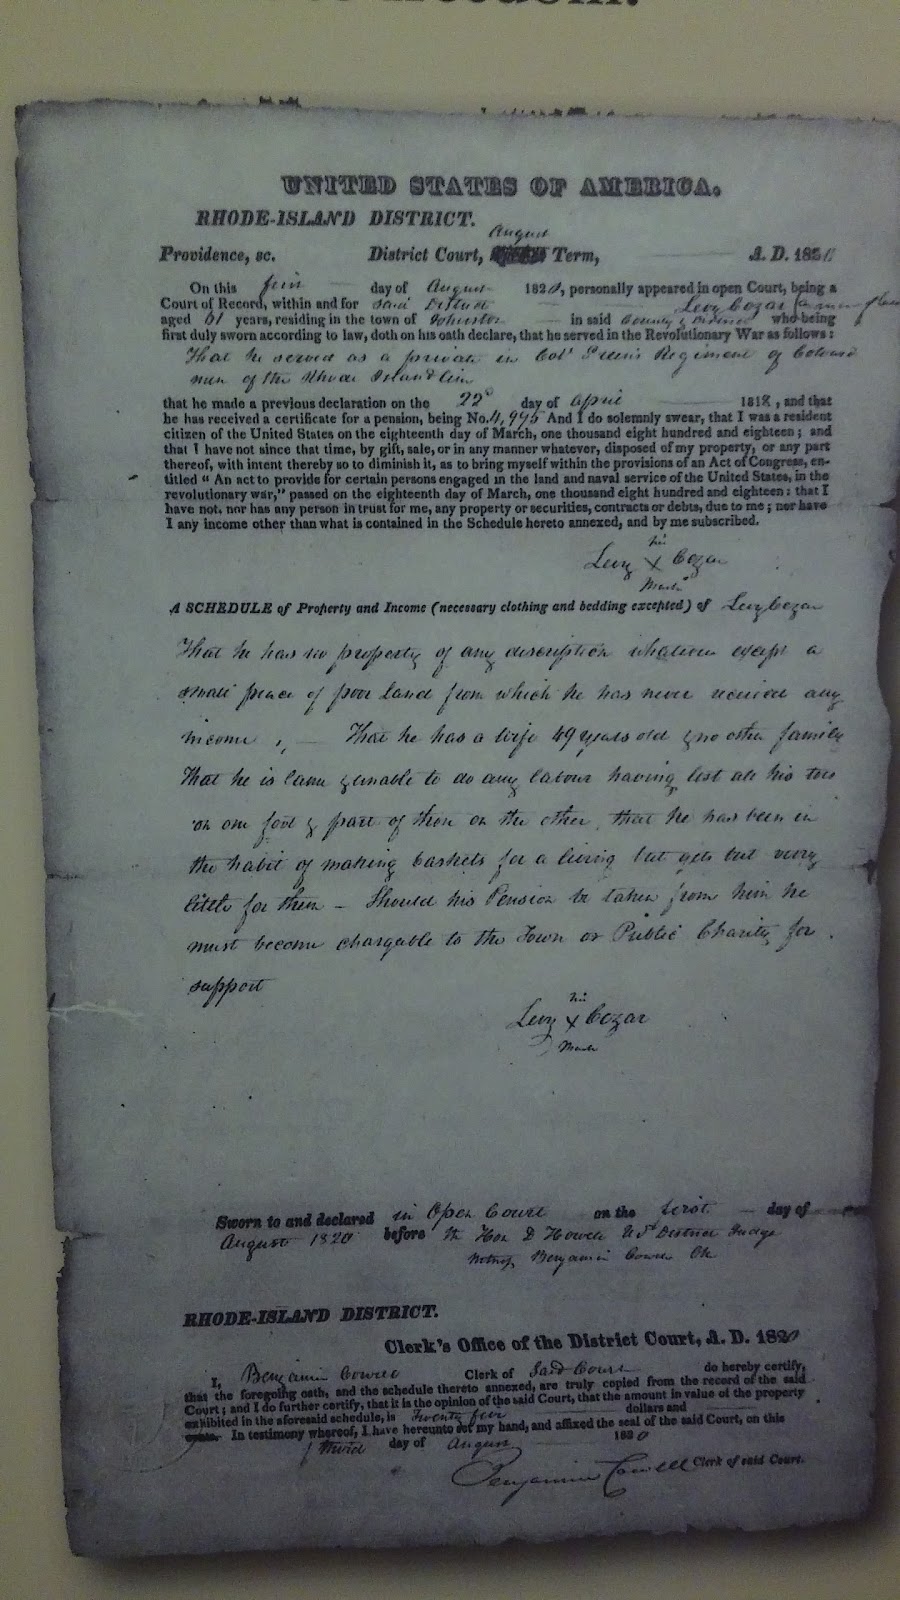 UNITED STATES OF AMERICA.
RHODE-ISLAND DISTRICT.
August
Providence, sc. District Court, Term, A. D. 1820
On this first day of August 1820, personally appeared in open Court, being a
Court of Record, within and for said District Levy Cozar (a man of
aged 61 years, residing in the town of Johnston in said County of Providence who being
first duly sworn according to law, doth on his oath declare, that he served in the Revolutionary War as follows:
That he served as a private in Colo Green's Regiment of Colourd
men of the Rhode Island line
that he made a previous declaration on the 22d day of April 1818, and that
he has received a certificate for a pension, being No. 4,995 And I do solemnly swear, that I was a resident
citizen of the United States on the eighteenth day of March, one thousand eight hundred and eighteen; and
that I have not since that time, by gift, sale, or in any manner whatever, disposed of my property, or any part
thereof, with intent thereby so to diminish it, as to bring myself within the provisions of an Act of Congress, en-
titled "An act to provide for certain persons engaged in the land and naval service of the United States, in the
revolutionary war," passed on the eighteenth day of March, one thousand eight hundred and eighteen: that I
have not, nor has any person in trust for me, any property or securities, contracts or debts, due to me; nor have
I any income other than what is contained in the Schedule hereto annexed, and by me subscribed.
his
Levy X Cozar
Mark
A SCHEDULE of Property and Income (necessary clothing and bedding excepted) of Levy Cozar
That he has no property of any description whatever except a
small peace of poor land from which he has never received any
income, — That he has a wife 49 years old & no other family
That he is lame & unable to do any labour having lost all his toes
on one foot & part of them on the other, that he has been in
the habit of making baskets for a living but gets but very
little for them — Should his Pension be taken from him he
must become chargable to the Town or Public Charity for
support
his
Levy X Cozar
Mark
Sworn to and declared in Open Court on the first day of
August 1820 before the Hon D Howell US District Judge
Witness Benjamin Cowell Clk
RHODE-ISLAND DISTRICT.
Clerk's Office of the District Court, A. D. 1820
I, Benjamin Cowell Clerk of Said Court do hereby certify,
that the foregoing oath, and the schedule thereto annexed, are truly copied from the record of the said
Court; and I do further certify, that it is the opinion of the said Court, that the amount in value of the property
exhibited in the aforesaid schedule, is Twenty five dollars and
cents. In testimony whereof, I have hereunto set my hand, and affixed the seal of the said Court, on this
third day of August 1820
Benjamin Cowell Clerk of said Court.